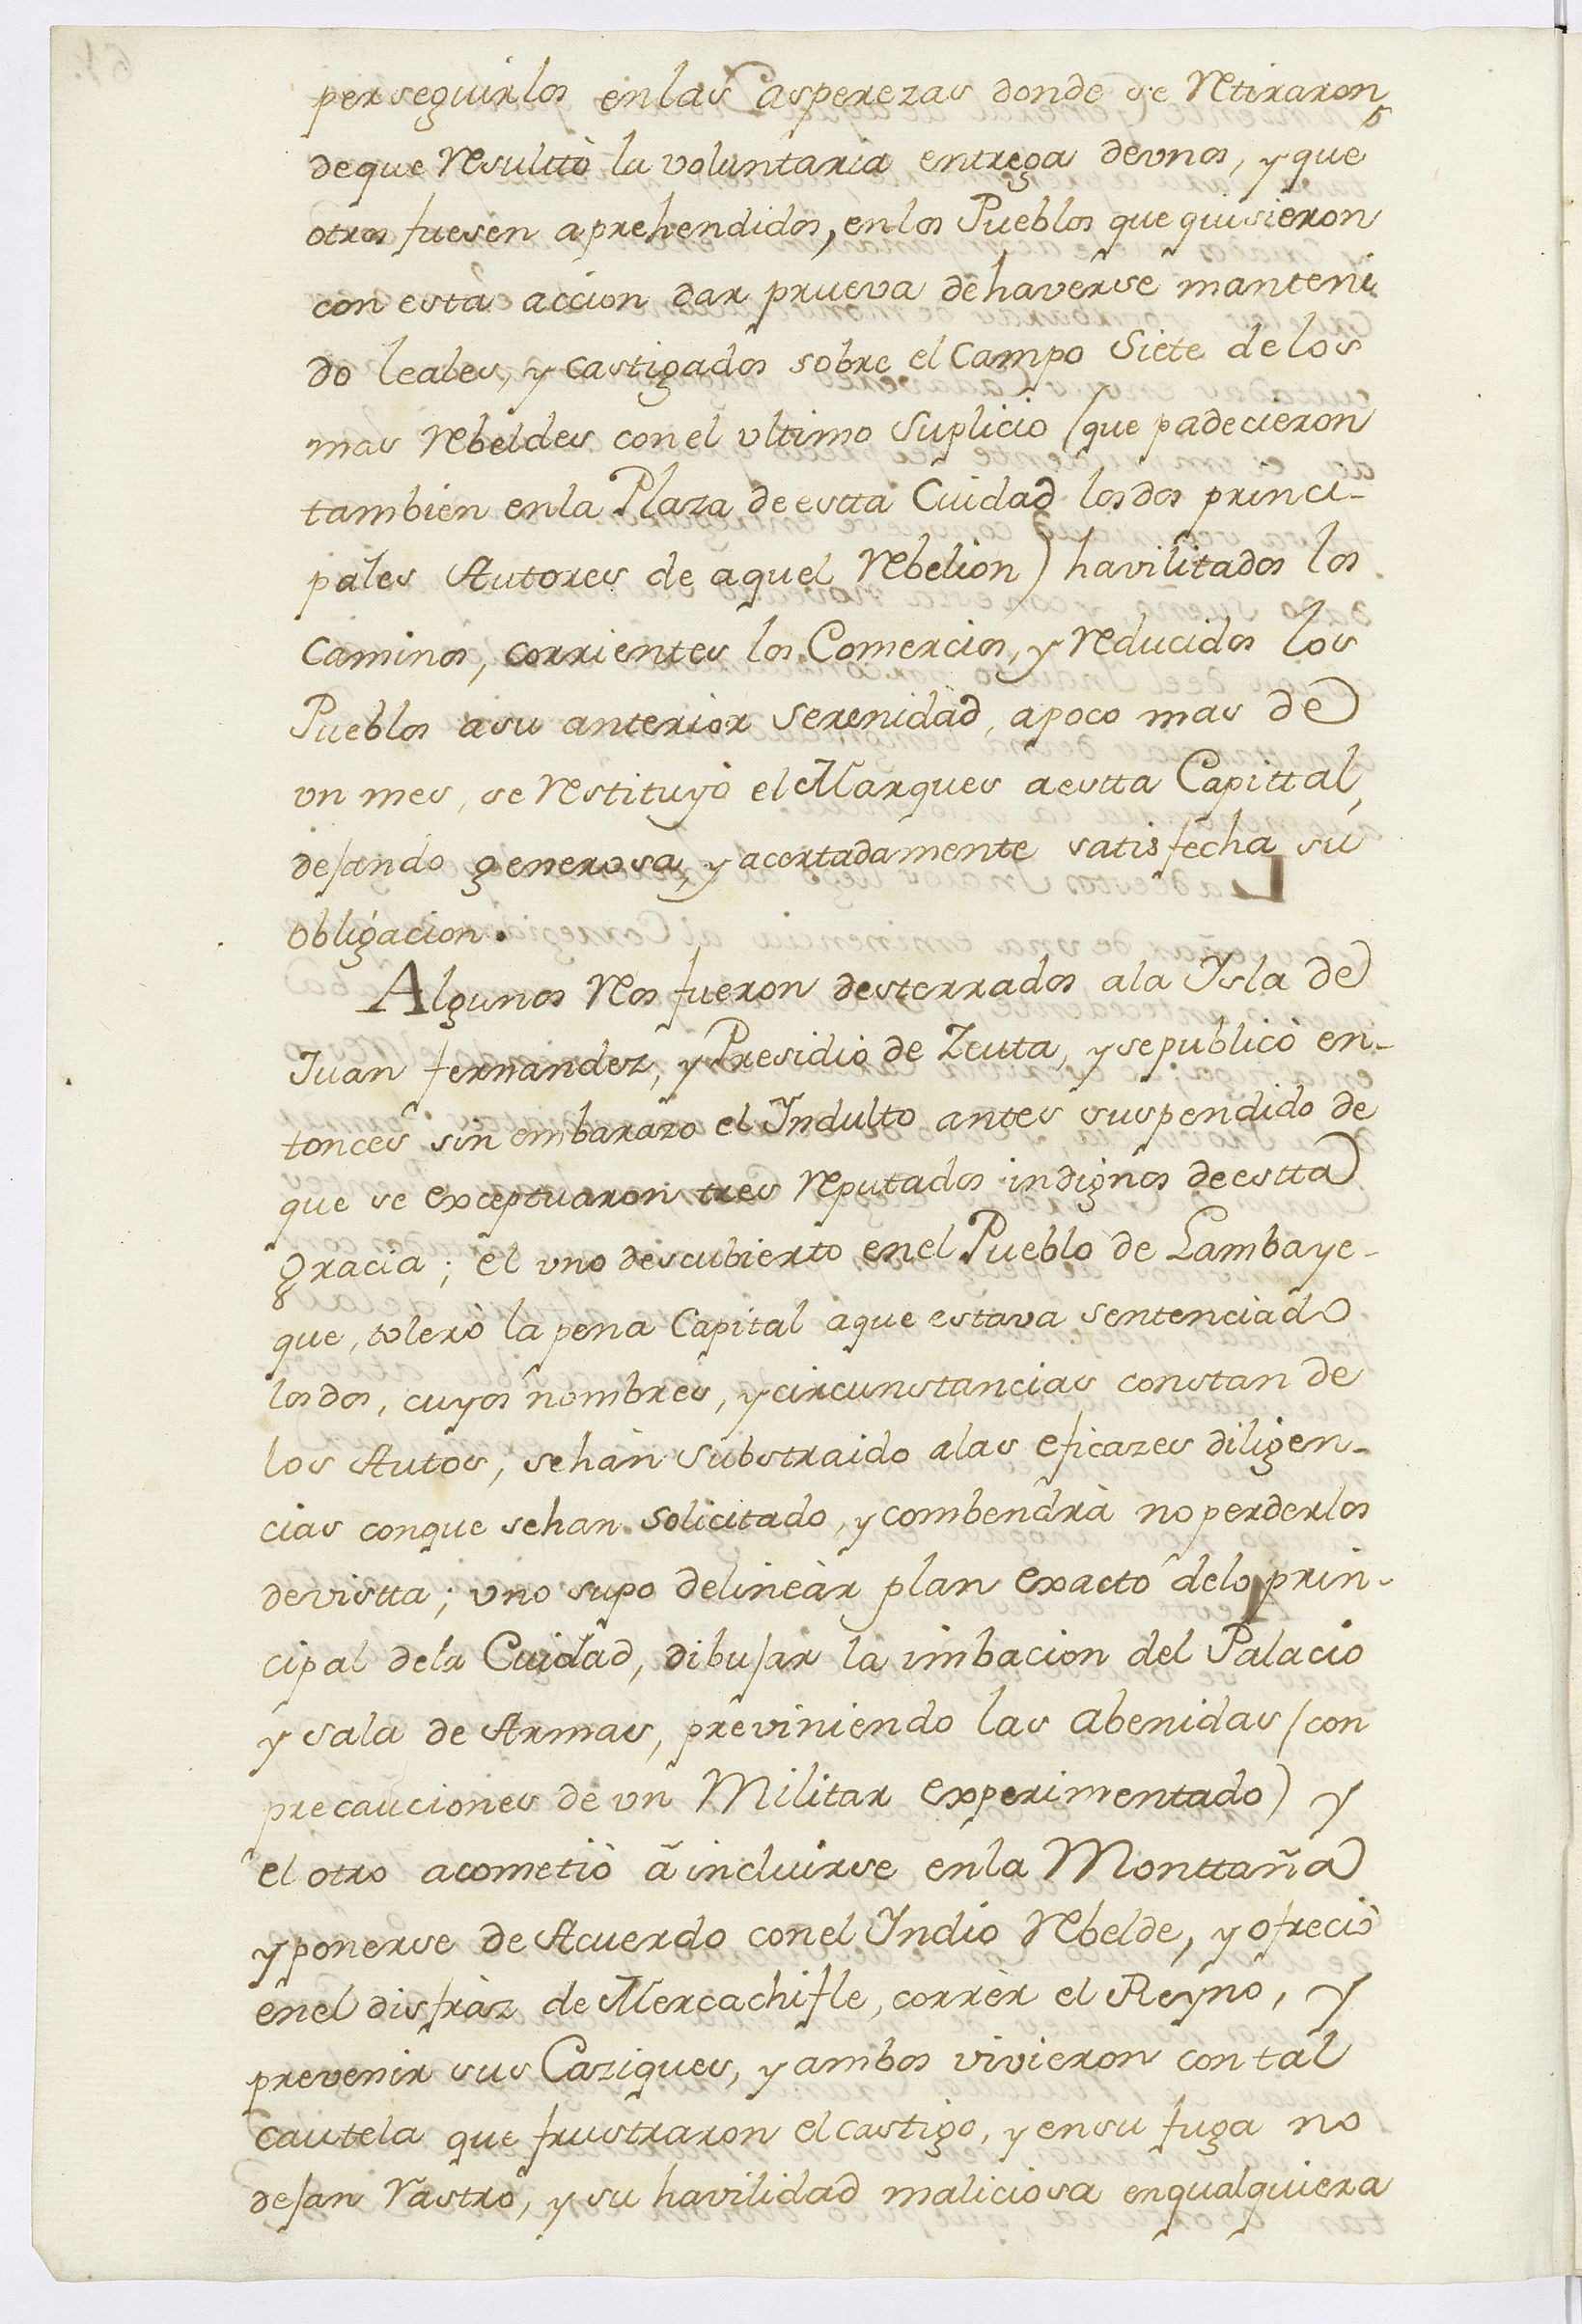 perseguirlos enlas asperezas donde se Retiraron,
deque Resulttò la voluntaria entrega devnos, y que
otros fuesen aprehendidos, enlos Pueblos que quisieron
con esta accion dar prueva dehaverse manteni
do leales, y castigados sobre el Campo Siete delos
mas Rebeldes conel vltimo Suplicio (que padecieron
tambien enla Plaza deestta Ciudad losdos princi-
pales Autores de aquel Rebelion) havilitados los
Caminos, corrientes los Comercios, y Reducidos los
Pueblos asu anterior Serenidad, apoco mas de
vn mes, se Restituyò el Marques aestta Capittal,
dejando generosa, y acertadamente satisfecha su
obligacion.
Algunos Reos fueron desterrados ala Ysla de
Juan fernandez, y Presidio de Zeuta, y sepublicò en-
tonces sin embarazo el Yndulto antes suspendido de
que se exceptuaron tres Reputados indignos deestta
Gracia; el vno descubierto enel Pueblo de Lambaye-
que, tolerò la pena Capital aque estava sentenciado
losdos, cuyos nombres, y circunstancias constan de
los Autos, sehàn Substraido alas eficazes diligen-
cias conque sehan Solicitado, y combendrà no perderlos
devistta; vno supo delinear plan exacto delo prin-
cipal dela Cuidad, dibujar la imbacion del Palacio
y sala de Armas, previniendo las abenidas (con
precauciones de vn Militar experimentado) y
el otro acometiò à incluirse enla Monttaña
y ponerse de Acuerdo conel Yndio Rebelde, y ofreciò
enel disfraz de Mercachifle, correr el Reyno, y
prevenir sus Caziques, y ambos vivieron con tal
Cautela que frustraron el castigo, y ensu fuga no
dejan Rastro, y su havilidad maliciosa enqualquiera